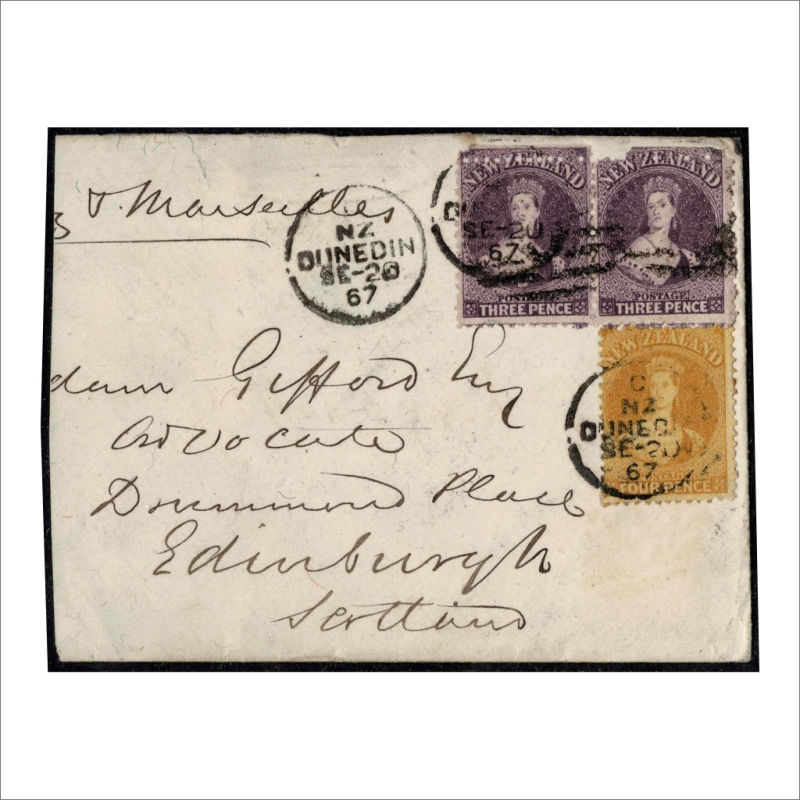 & Marseilles
NZ
DUNEDIN
SE-20
67
NEW ZEALAND
POSTAGE
THREE PENCE
SE-20
67
NEW ZEALAND
POSTAGE
THREE PENCE
dam Gifford Esq
Advocate
Drummond Place
Edinburgh
Scotland
NEW ZEALAND
FOUR PENCE
C
NZ
DUNEDI
SE-20
67